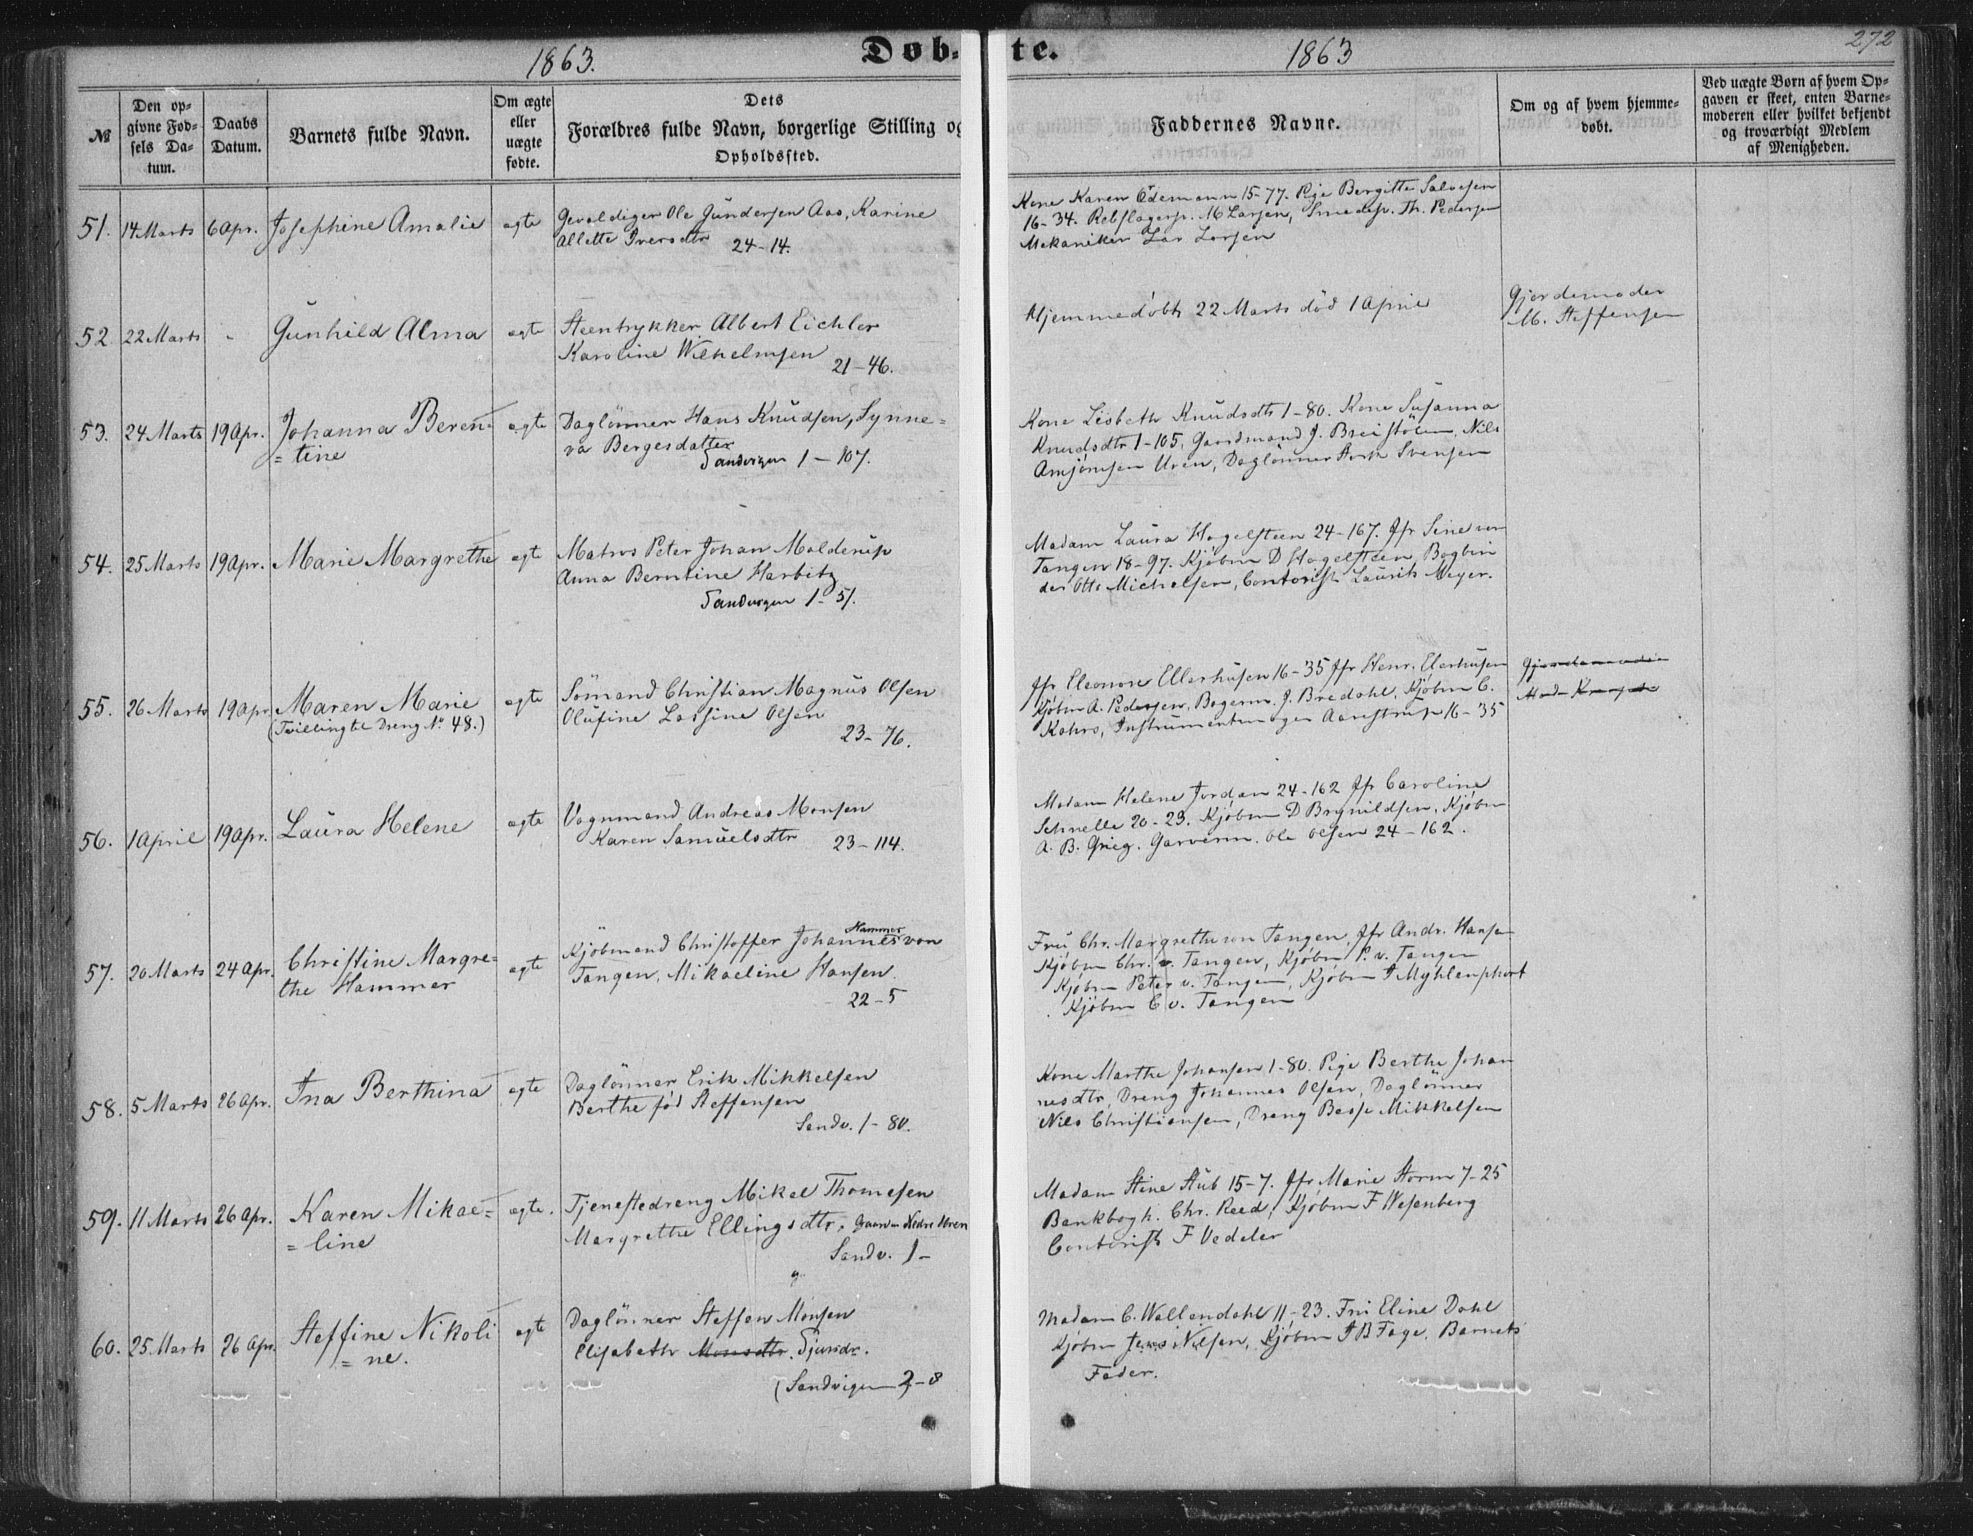 1863. Døb- te. 1863 272
№
Den op-
givne Fød-
sels Da-
tum.
Daabs
Datum.
Barnets fulde Navn.
Om ægte
eller
uægte
fødte.
Dets
Forældres fulde Navn, borgerlige Stilling og
Opholdssted.
Faddernes Navne.
Om og af hvem hjemme-
døbt.
Ved uægte Børn af hvem Op-
gaven er skeet, enten Barne-
moderen eller hvilket bekjendt
og troværdigt Medlem
af Menigheden.
51. 14 Marts 6 Apr. Josephine Amalie egte
Gevaldiger Ole Gundersen Aas, Karine
Allette Iversdtr 24-14.
Kone Karen Ödemann 15-77. Pige Bergitte Salvesen
16-34. Rebslagersv. M Larsen, Smedesv. Th. Pedersen
Mekaniker Lar Larsen
52. 22 Marts - Gunhild Alma egte
Steentrykker Albert Eichler
Karoline Wilhelmsen
21-46.
Hjemmedöbt 22 Marts död 1 April
Gjordemoder
M. Steffensen
53. 24 Marts 19 Apr. Johanna Beren-
=tine
egte
Daglönner Hans Knudsen, Synne=
va Bergesdatter
Sandvigen 1-107.
Kone Lisbeth Knudsdtr 1-80. Kone Susanna
Knudsdtr 1-105, Gaardmand J. Breistölen, Nils
Arnjömsen Uren, Daglönner Svensen
54. 25 Marts 19 Apr. Marie Margrethe egte
Matros Peter Johan Molderup
Anna Berntine Harbitz
Sandvigen 1-51.
Madam Laura Hagelsteen 24-167. Jfr Sine von
Tangen 18-97. Kjöbm D Hagelsteen, Bogbin
der Otto Michelsen, Contorist Laurits Meyer.
55. 26 Marts 19 Apr Maren Marie
(Tvilling til Dreng No 48.)
egte
Sömand Christian Magnus Olsen
Olufine Lassine Olsen
23-76.
Jfr Eleonore Ellerhusen 16-35 Jfr Henr. Elerhusen
Kjöbm A. Pedersen, Bagerm. J. Bredahl, Kjöbm C.
Kahrs, Instrumentmager Aarestrup 16-35
Gjordemoder
56. 1 April 19 Apr. Laura Helene egte
Vognmand Andreas Monsen
Karen Samuelsdtr 23-114.
Madam Helene Jordan 24-162 Jfr Caroline
Schnelle 20-23. Kjöbm D Brynildsen, Kjöbm
A. B. Grieg. Garverm. Ole Olsen 24-162.
57. 20 Marts 24 Apr. Christine Margre=
the Hammer
egte
Hammer
Kjöbmand Christoffer Johannes von
Tangen, Mikaeline Hansen
22-5
Fru Chr. Margrethe von Tangen, Jfr Andr. Hansen
Kjöbm Chr. v. Tangen, Kjöbm P. v. Tangen
Kjöbm Peter v. Tangen, Kjöbm J Myhlenphort
Kjöbm C v. Tangen
58. 5 Marts 26 Apr. Ina Berthina egte
Daglönner Erik Mikkelsen
Berthe fød Steffensen
Sandv. 1-80.
Kone Marthe Johansen 1-80. Pige Berthe Johan
nesdtr, Dreng Johannes Olsen, Daglönner
Nils Christiansen, Dreng Besse Mikkelsen
59. 11 Marts 26 Apr. Karen Mikae=
=line
egte.
Tjenestedreng Mikel Thomesen
Margrethe Ellingsdtr. Gaarden Nedre Uren
Sandv. 1-
Madam Stine Stub 15-7. Jfr Marie Storm 7-25
Bankbogh. Chr. Reed, Kjöbm F Wesenberg
Contorist F Vedeler
60. 25 Marts 26 Apr. Steffine Nikoli
=ne.
egte
Daglönner Steffen Monsen
Elisabeth Monsdtr. Sjursdr.
(Sandvigen 2-8
Madam C. Wallendahl 11-23. Fru Eline Dahl
Kjöbm Jens Nilsen, Kjöbm J B Fage, Barnets
Fader.